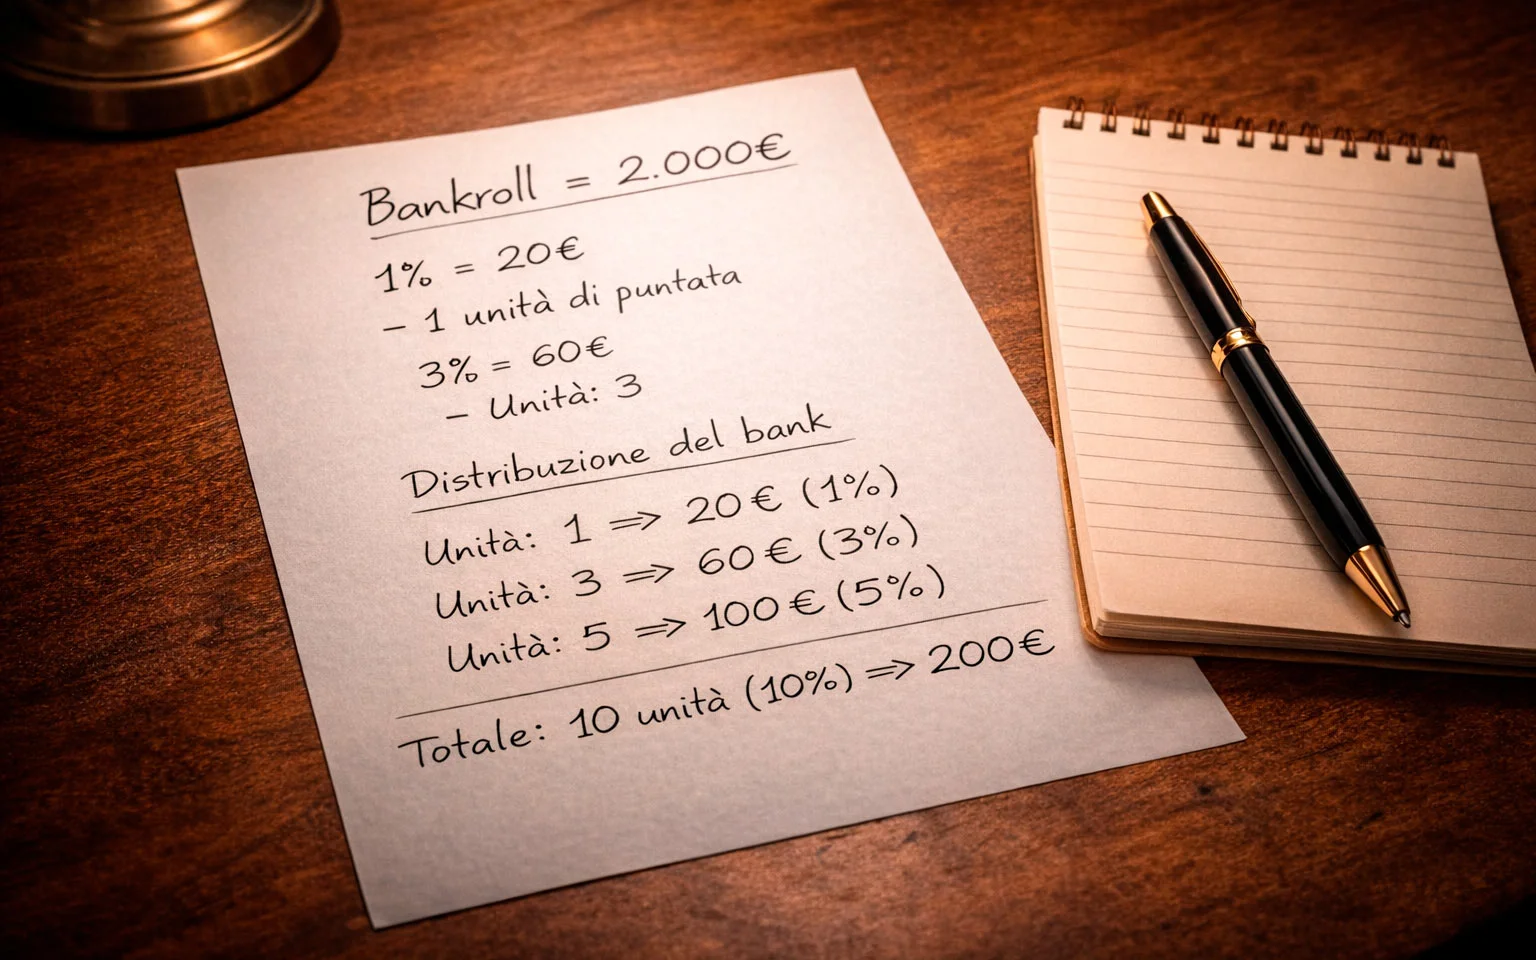 Bankroll = 2.000€
1% = 20€
– 1 unità di puntata
3% = 60€
– Unità: 3
Distribuzione del bank
Unità: 1 => 20€ (1%)
Unità: 3 => 60€ (3%)
Unità: 5 => 100€ (5%)
Totale: 10 unità (10%) => 200€